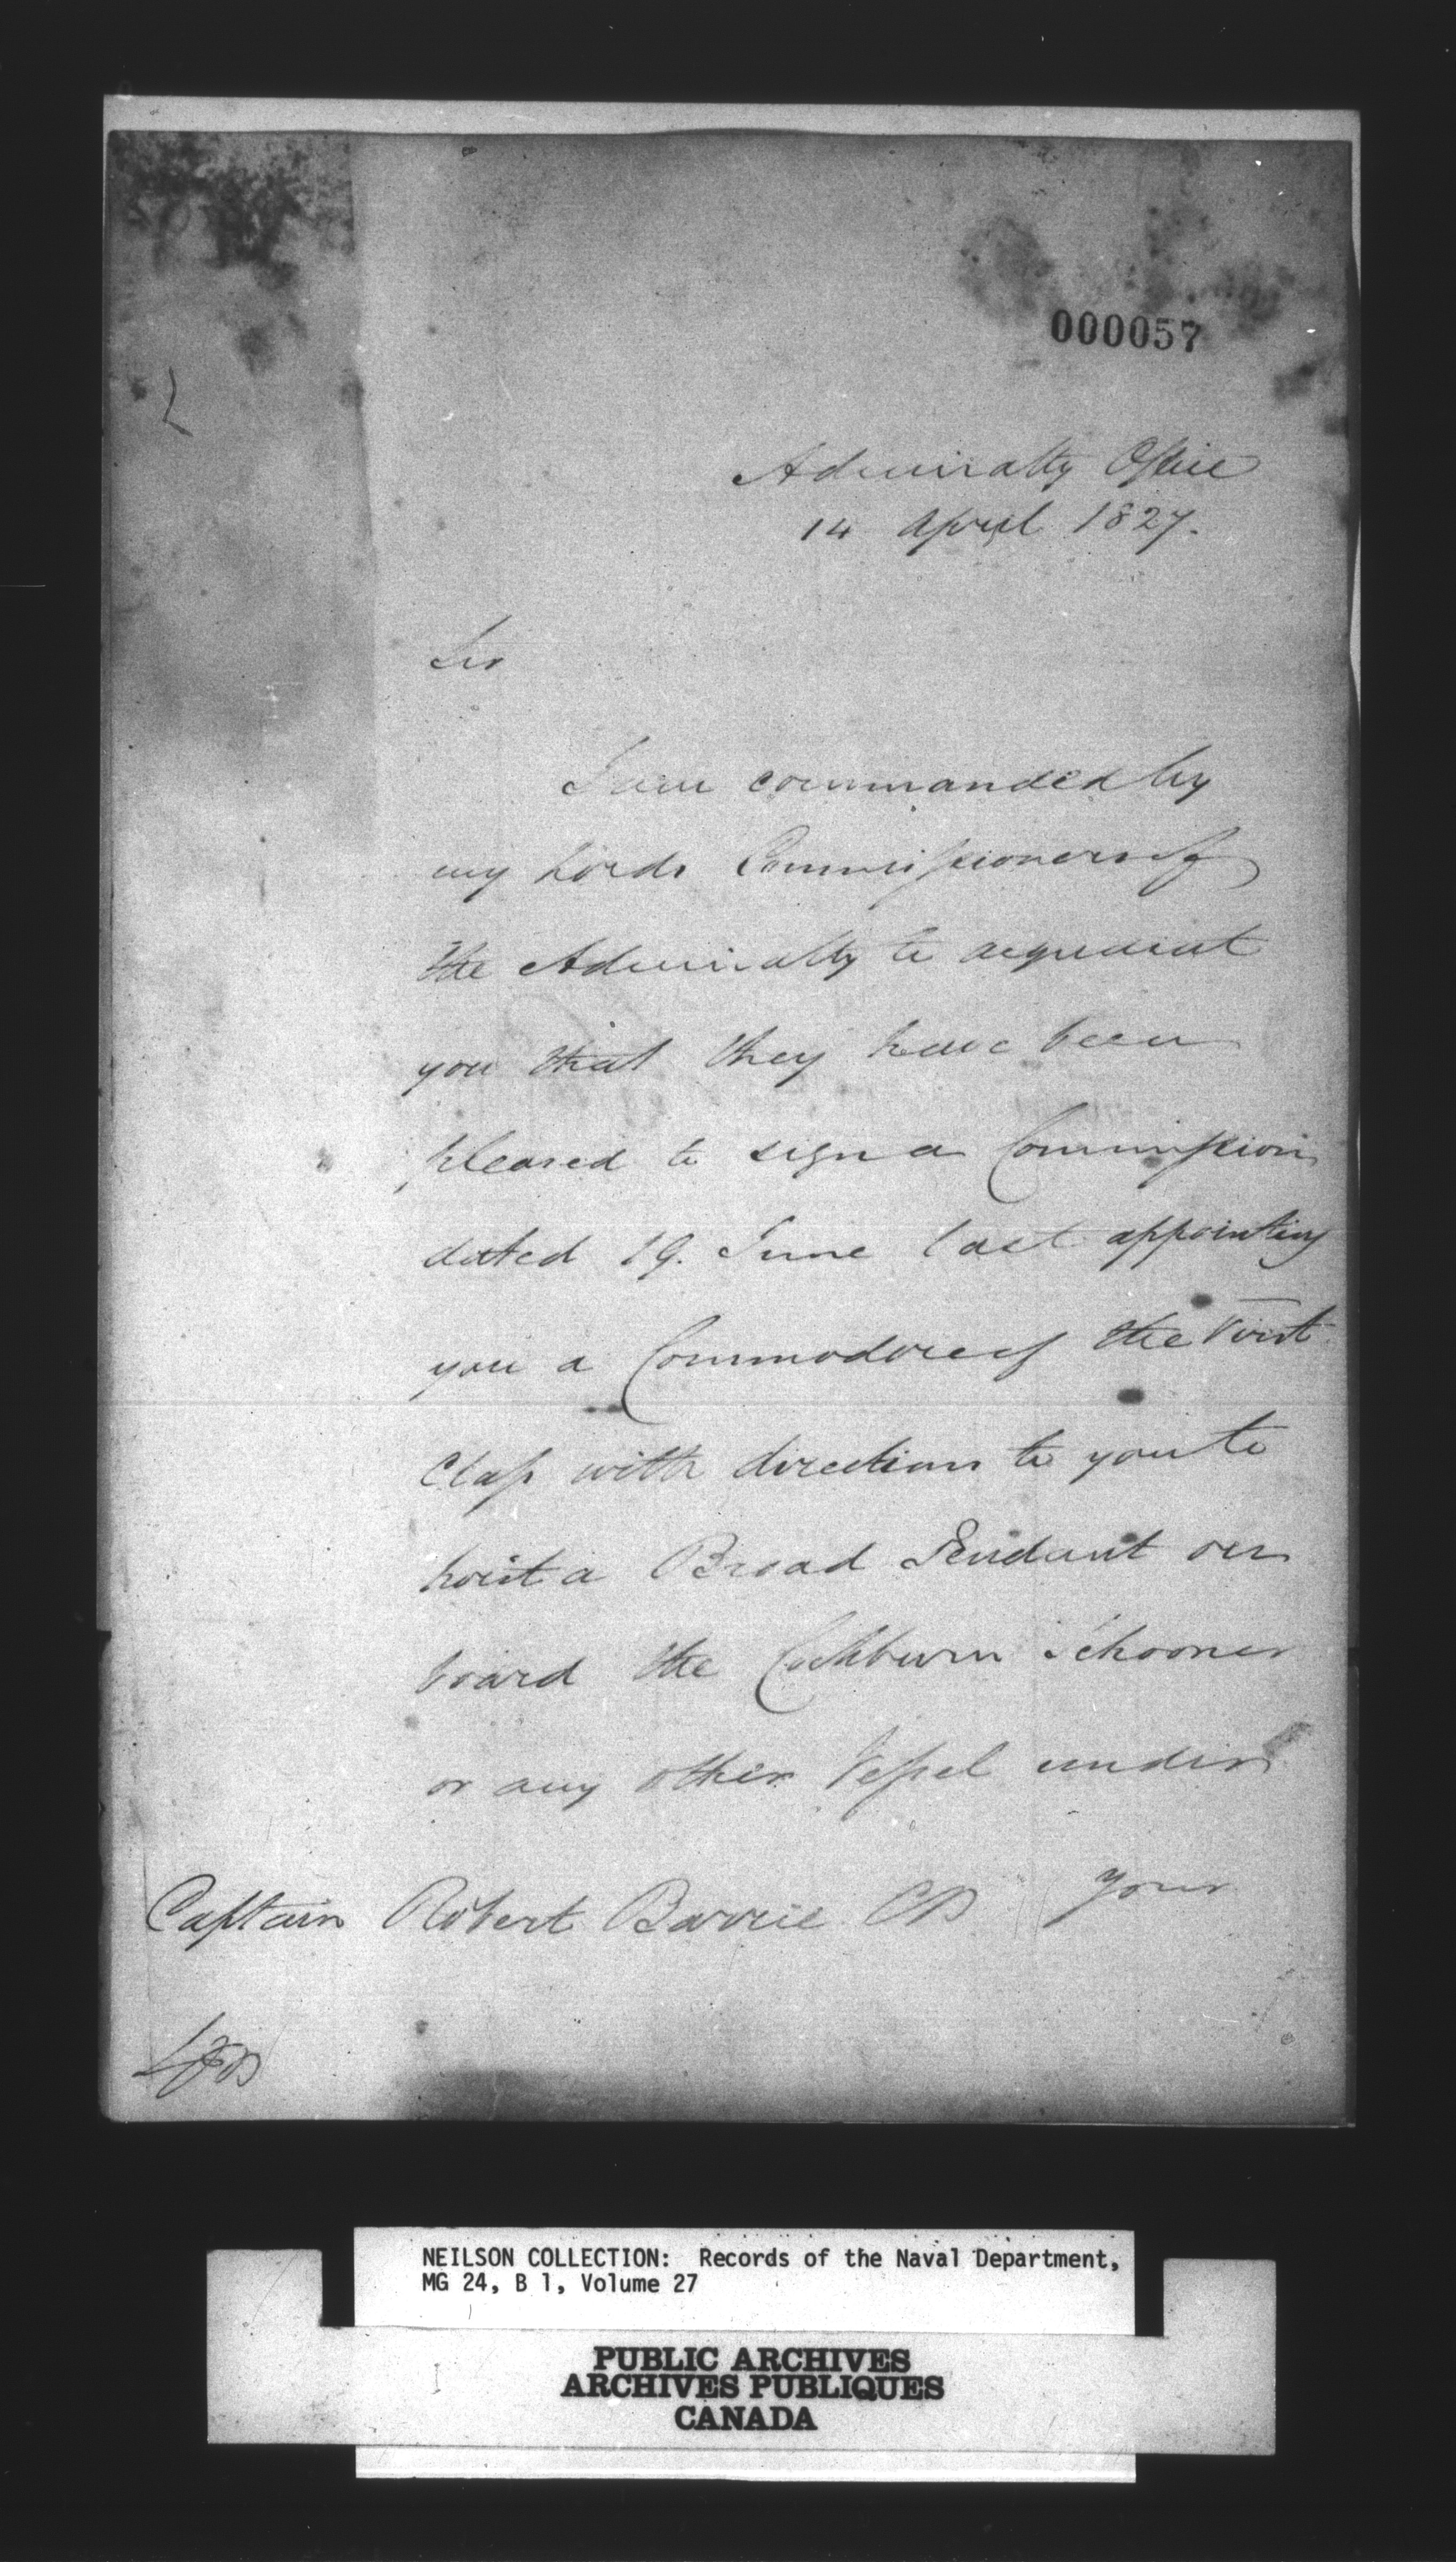 000057
Admiralty Office
14 April 1827.
Sir
I am commanded by
my Lords Commissioners of
the Admiralty to acquaint
you that they have been
pleased to sign a Commission
dated 19. June last appointing
you a Commodore of the First
Class with directions to you to
hoist a Broad Pendant on
board the Cockburn Schooner
or any other Vessel under
your
Captain Robert Barrie CB
NEILSON COLLECTION: Records of the Naval Department,
MG 24, B 1, Volume 27
PUBLIC ARCHIVES
ARCHIVES PUBLIQUES
CANADA